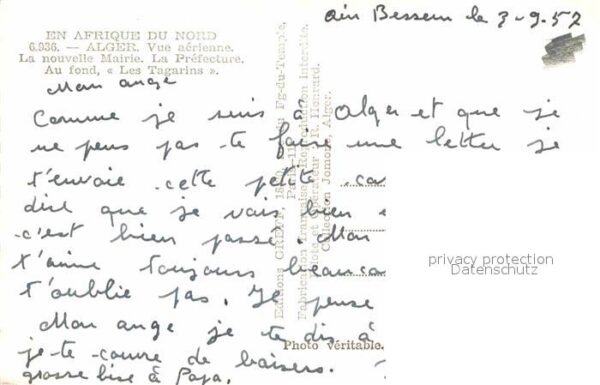 Ain Bessem le 3-9.52
EN AFRIQUE DU NORD
6.936. — ALGER. Vue aérienne.
La nouvelle Mairie. La Préfecture.
Au fond, « Les Tagarins ».
Mon ange
Comme je suis à Alger et que je
ne peus pas te faire une letter je
t'envoie cette petite ca
dire que je vais bien
c'est bien passé. Mon
t'aime toujours beauco
t'oublie pas. Je pense
Mon ange je te dis à
je te couvre de baisers.
grosse bise à Papa.
Editions GREFF, du Fg-du-Temple,
Fabrication Française. Reproduction interdite.
Pilote et Opérateur : R. Henrard.
Collection Jomone, Alger.
Photo véritable.
privacy protection
Datenschutz